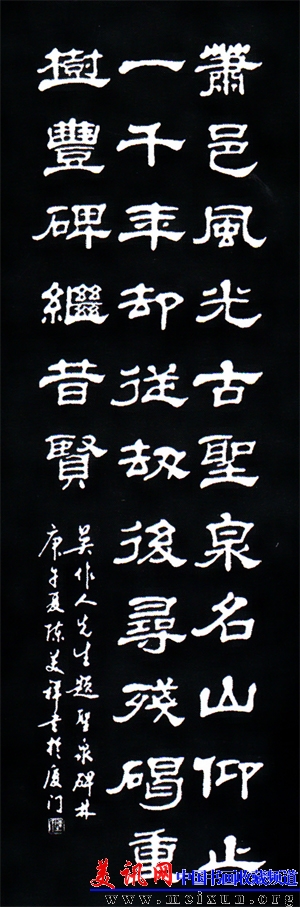 蕭邑風光古聖泉名山仰止
一千年却從劫後尋殘碣重
樹豐碑繼昔賢
吴作人先生題聖泉碑林
庚午夏陈美祥书於厦门
美讯网 中国书画收藏频道
www.meixun.net